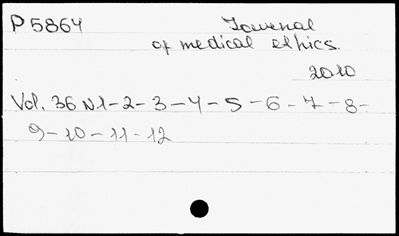 P 5864 Journal
of medical ethics.
2010
Vol. 36 N 1-2-3-4-5-6-7-8-
9-10-11-12